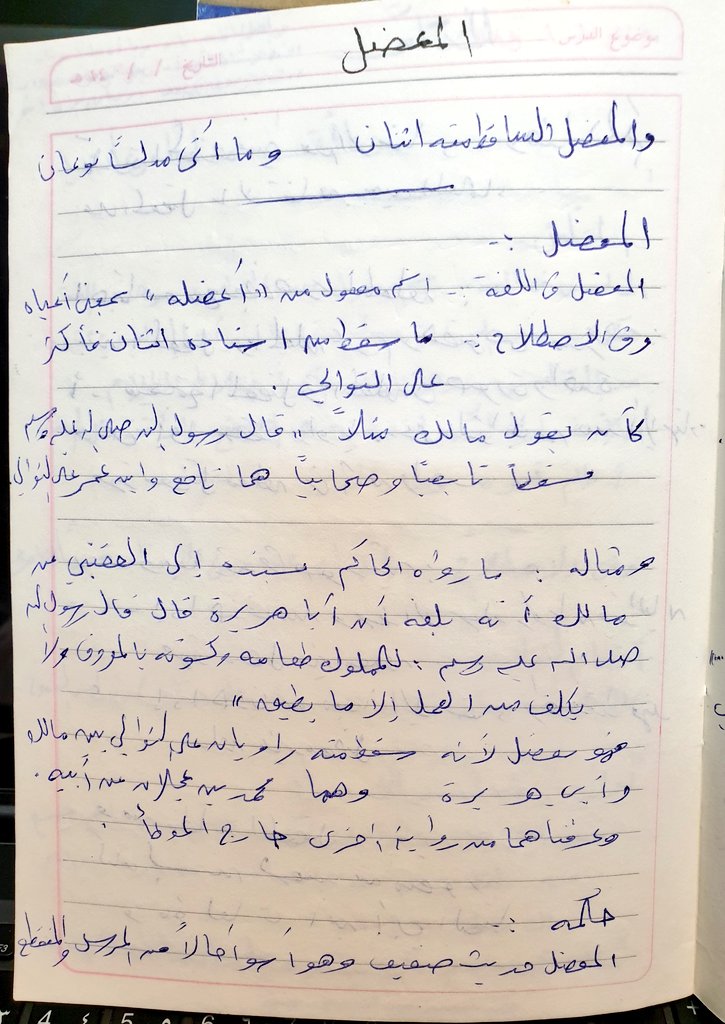 موضوع الدرس
التاريخ / /
المعضل
والمعضل الساقط منه اثنان وما أتى مدلسًا نوعان
المعضل :-
المعضل في اللغة :- اسم مفعول من "أعضله" بمعنى أعياه
وفي الاصطلاح :- ما سقط من اسناده اثنان فأكثر
على التوالي .
كأن يقول مالك مثلاً "قال رسول الله صلى الله عليه وسلم
مسقطاً تابعيًا وصحابياً هما نافع وابن عمر على التوالي.
ومثاله : ما رواه الحاكم بسنده إلى القعنبي عن
مالك أنه بلغه أن أبا هريرة قال قال رسول الله
صلى الله عليه وسلم : للمملوك طعامه وكسوته بالمعروف ولا
يكلف من العمل إلا ما يطيق "
فهو معضل لأنه سقط منه راويان على التوالي بين مالك
وأبي هريرة وهما محمد بن عجلان عن أبيه .
وعرفناهما من رواية أخرى خارج الموطأ .
حكمه :-
المعضل حديث ضعيف وهو أسوأ حالاً من المرسل والمنقطع